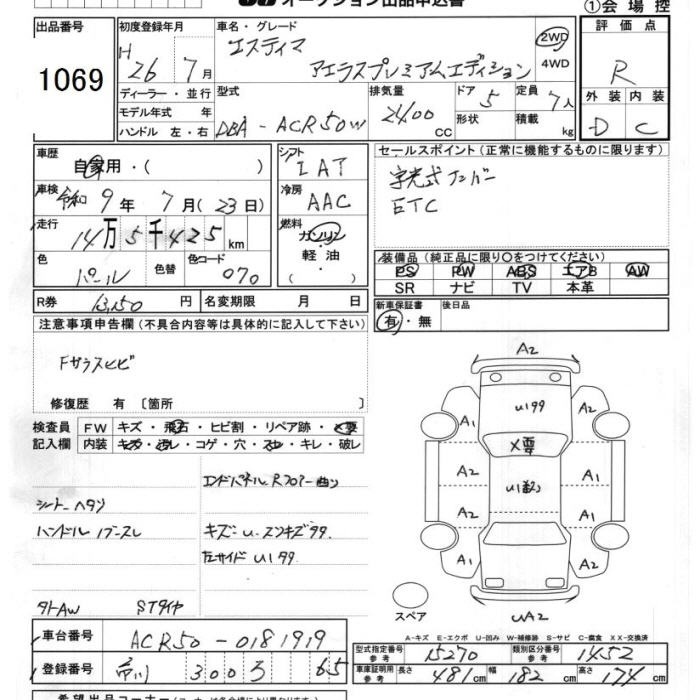 オークション出品申込書
①会場控
出品番号
1069
初度登録年月
H 26 年 7月
車名・グレード
エスティマ
アエラスプレミアムエディション
2WD
4WD
評価点
R
外装 内装
D C
ディーラー・並行
モデル年式 年
ハンドル 左・右
型式
DBA-ACR50W
排気量
2400 CC
ドア 5
形状
定員 7人
積載 kg
車歴
自家用・( )
シフト
IAT
車検
令和 9年 7月(23日)
冷房
AAC
走行
14万5千425km
燃料
ガソリン
軽・油
( )
色
パール
色替
色コード
070
R券 13,150 円
名変期限 月 日
セールスポイント(正常に機能するものに限ります)
字光式ナンバー
ETC
装備品(純正品に限り○をつけてください)
PS PW ABS エアB AW
SR ナビ TV 本革
新車保証書
有・無
後日品
注意事項申告欄(不具合内容等は具体的に記入して下さい)
Fガラスヒビ
修復歴 有 〔箇所 〕
検査員
記入欄
FW キズ・飛石・ヒビ割・リペア跡・X要
内装 キズ・汚レ・コゲ・穴・スレ・キレ・破レ
エンドパネルRフロアー曲り
シートヘタリ
ハンドル
キズ・U・スリキズ有
左サイドU199
タトAW STタイヤ
A2
U199
A2
A2
A1
A1
X要
A2
A1
A2
A1
A1
A2
UA2
スペア
A-キズ E-エクボ U-凹み W-補修跡 S-サビ C-腐食 XX-交換済
車台番号
ACR50-0181919
登録番号
市川 300 ろ 65
型式指定番号
参考
15270
類別区分番号
参考
1452
車庫証明用
参考
長さ 481cm 幅 182cm 高さ 174cm
希望出品コーナー